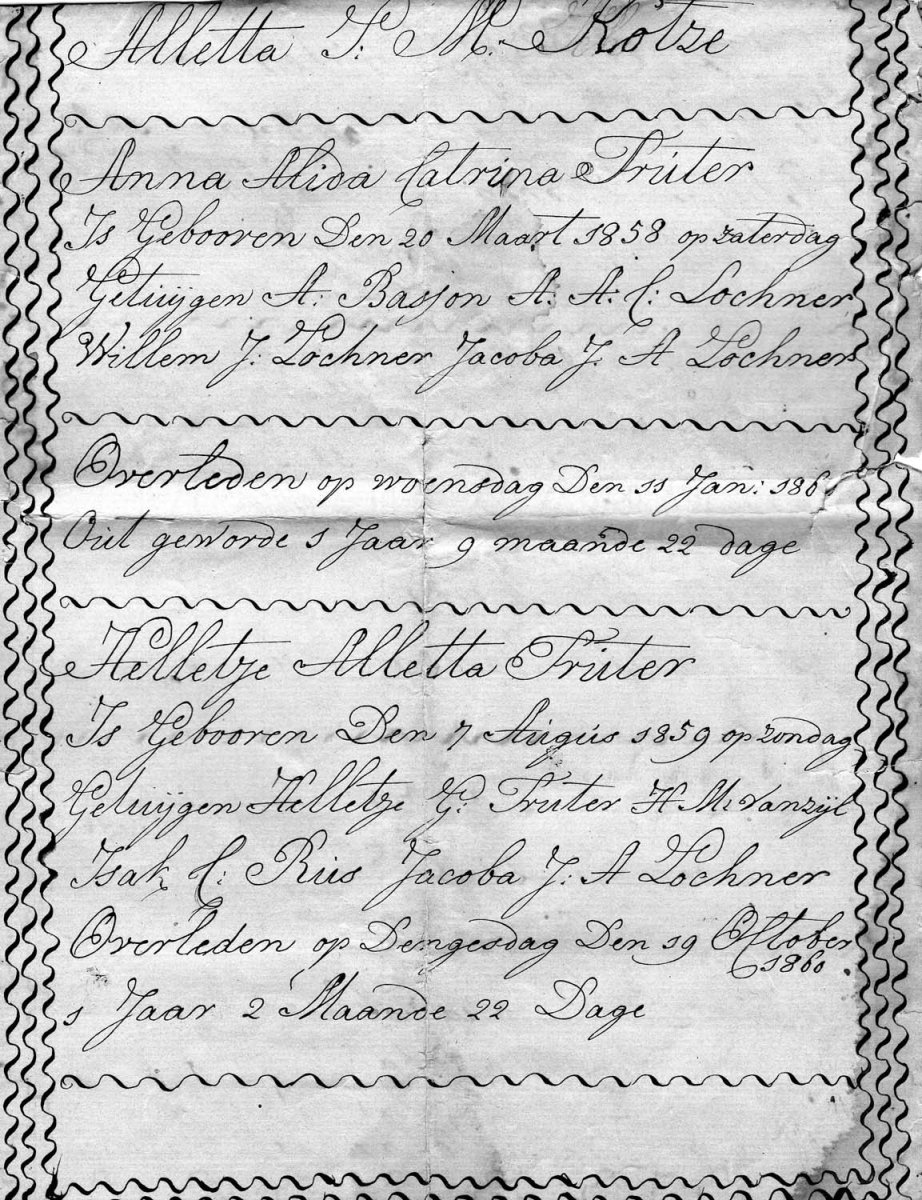 Alletta J. M. Kotze
Anna Alida Catrina Trúter
Is Gebooren Den 20 Maart 1858 op zaterdag
Getuijgen A: Basjon A: A: C: Lochner
Willem J: Lochner Jacoba J. A Lochner
Overleden op woensdag Den 11 Jan: 186
Out geworde 1 Jaar 9 maande 22 dage
Helletje Alletta Trúter
Is Gebooren Den 7 Augús 1859 op zondag
Getuijgen Helletje G: Trúter H. M. Vanzijl
Isak C: Rús Jacoba J: A Lochner
Overleden op Dengesdag Den 19 October
1860
1 Jaar 2 Maande 22 Dage